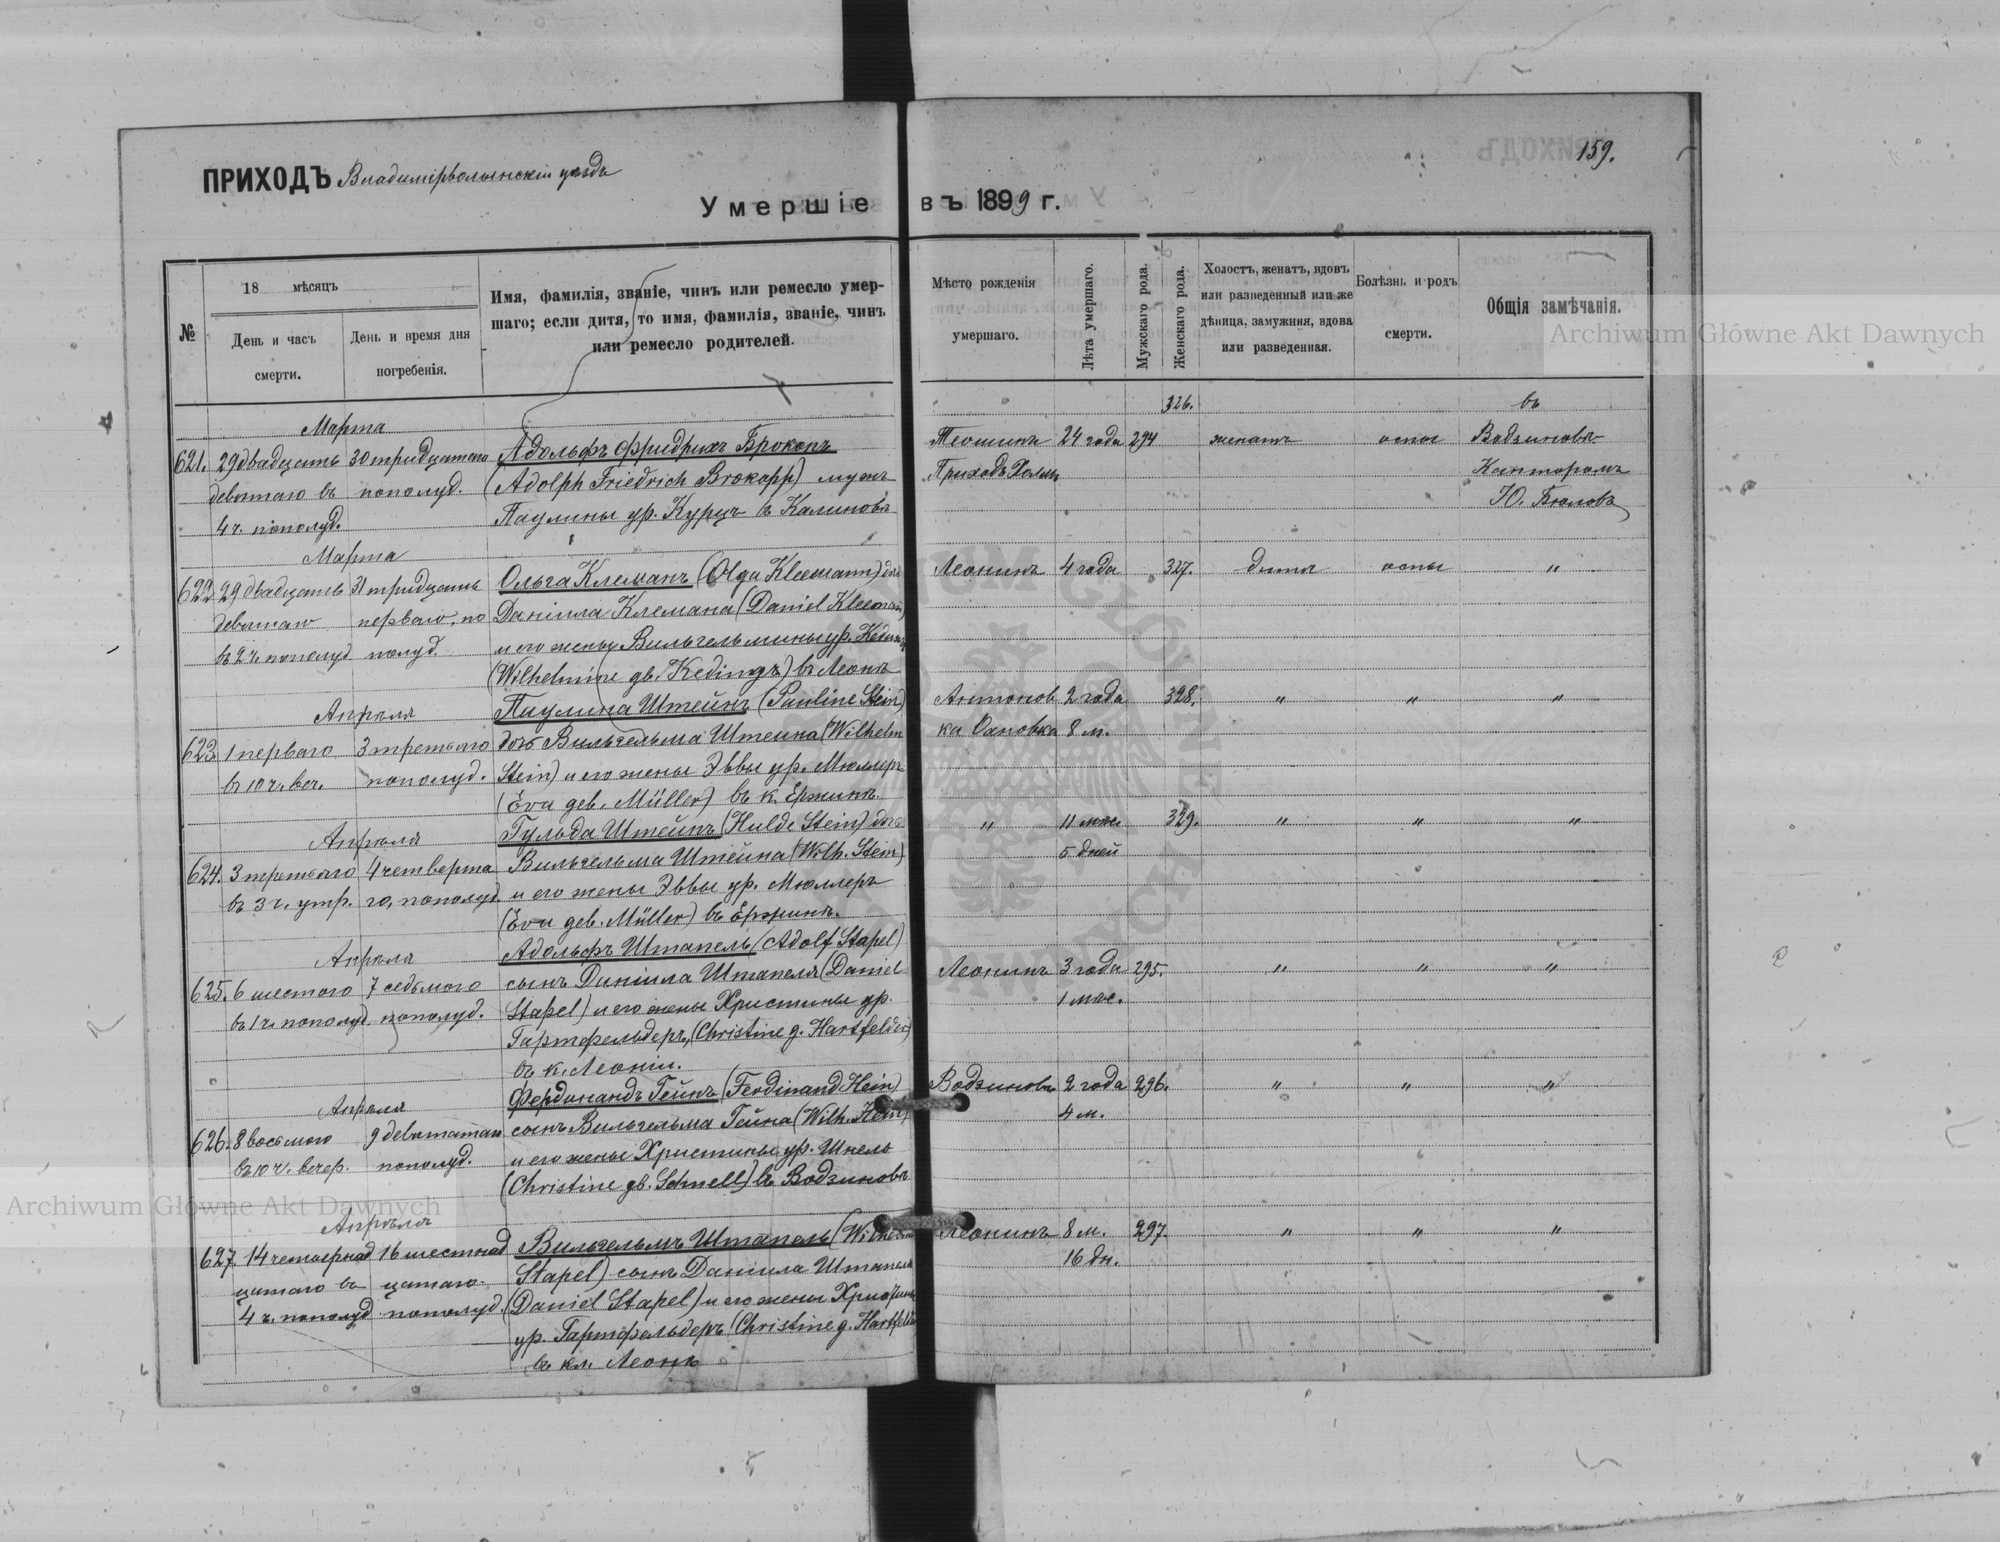 ПРИХОДЪ Владимірволынскій уѣздъ
159.
Умершіе въ 1899 г.
№
18 мѣсяцъ
День и часъ смерти.
День и время дня погребенія.
Имя, фамилія, званіе, чинъ или ремесло умер-
шаго; если дитя, то имя, фамилія, званіе, чинъ
или ремесло родителей.
Мѣсто рожденія
умершаго.
Лѣта умершаго.
Мужскаго рода.
Женскаго рода.
Холостъ, женатъ, вдовъ
или разведенный или же
дѣвица, замужняя, вдова
или разведенная.
Болѣзнь и родъ
смерти.
Общія замѣчанія.
Archiwum Główne Akt Dawnych
326. въ
Марта
621. 29 двадцать 30 тридцатаго Адольфъ Фридрихъ Брокопъ 24 года 294 женатъ оспы
девятаго въ пополуд. (Adolph Friedrich Brokopp) мужъ Приходъ Холмъ Канторомъ
4 ч. пополуд. Паулины ур. Курцъ въ Калиновѣ Ю. Бюловъ
Марта
622. 29 двадцать 31 тридцать Ольга Клеманъ (Olga Kleemann) дочь Леонинъ 4 года 327. дитя оспы "
девятаго перваго, по Даніила Клемана (Daniel Kleemann)
въ 2 ч. пополуд полуд. и его жены Вильгельмины ур. Кедингъ
(Wilhelmine дв. Kedingъ) въ Леонѣ
Апрѣля Паулина Штейнъ (Pauline Stein) Антонов 2 года 328. " " "
623. 1 перваго 3 третьяго дочь Вильгельма Штейна (Wilhelm ка Охновка 8 м.
въ 10 ч. веч. пополуд. Stein) и его жены Эввы ур. Мюллеръ
(Eva дев. Müller) въ к. Ержинъ
Апрѣля Гульда Штейнъ (Hulde Stein) дочь " 11 мѣс. 329. " " "
624. 3 третьяго 4 четверта Вильгельма Штейна (Wilh. Stein) 5 дней
въ 3 ч. утр. го, пополуд. и его жены Эввы ур. Мюллеръ
(Eva дев. Müller) въ Ержинъ.
Апрѣля Адольфъ Штапель (Adolf Stapel)
625. 6 шестого 7 седьмого сынъ Даніила Штапеля (Daniel Леонинъ 3 года 295. " " "
въ 1 ч. пополуд пополуд. Stapel) и его жены Христины ур. 1 мѣс.
Гартфельдеръ, (Christine д. Hartfelder)
въ к. Леоніи.
Фердинандъ Гейнъ (Ferdinand Hein) 2 года 296. " " "
Апрѣля
626. 8 восьмого 9 девятаго сынъ Вильгельма Гейна (Wilh. Hein) 4 м.
въ 10 ч. вечер. пополуд. и его жены Христины ур. Шнель
(Christine дв. Schnell) въ Водзиновѣ
Archiwum Główne Akt Dawnych
Апрѣля
627. 14 четырнад 16 шестнад Вильгельмъ Штапель (Wilhelm Леонинъ 8 м. 297. " " "
цатаго въ цатаго Stapel) сынъ Даніила Штапеля 16 дн.
4 ч. пополуд пополуд. (Daniel Stapel) и его жены Христины
ур. Гартфельдеръ (Christine д. Hartfelder
въ кл. Леонъ